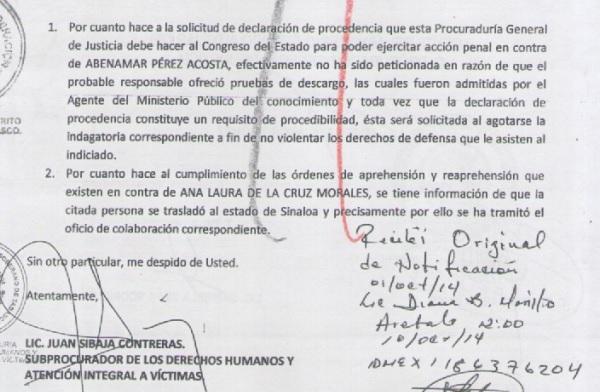 1. Por cuanto hace a la solicitud de declaración de procedencia que esta Procuraduría General
de Justicia debe hacer al Congreso del Estado para poder ejercitar acción penal en contra
de ABENAMAR PÉREZ ACOSTA, efectivamente no ha sido peticionada en razón de que el
probable responsable ofreció pruebas de descargo, las cuales fueron admitidas por el
Agente del Ministerio Público del conocimiento y toda vez que la declaración de
procedencia constituye un requisito de procedibilidad, ésta será solicitada al agotarse la
indagatoria correspondiente a fin de no violentar los derechos de defensa que le asisten al
indiciado.
2. Por cuanto hace al cumplimiento de las órdenes de aprehensión y reaprehensión que
existen en contra de ANA LAURA DE LA CRUZ MORALES, se tiene información de que la
citada persona se trasladó al estado de Sinaloa y precisamente por ello se ha tramitó el
oficio de colaboración correspondiente.
Sin otro particular, me despido de Usted.
Atentamente,
LIC. JUAN SIBAJA CONTRERAS.
SUBPROCURADOR DE LOS DERECHOS HUMANOS Y
ATENCIÓN INTEGRAL A VÍCTIMAS
Recibí Original
de Notificación
01/oct/14
Lic Diana B.
12:00
10/oct/14
1186376204